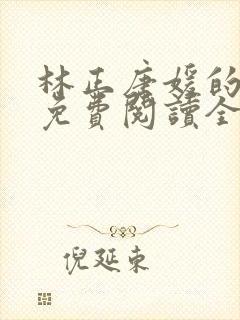 林正唐媛的
免費閱讀全
倪延東